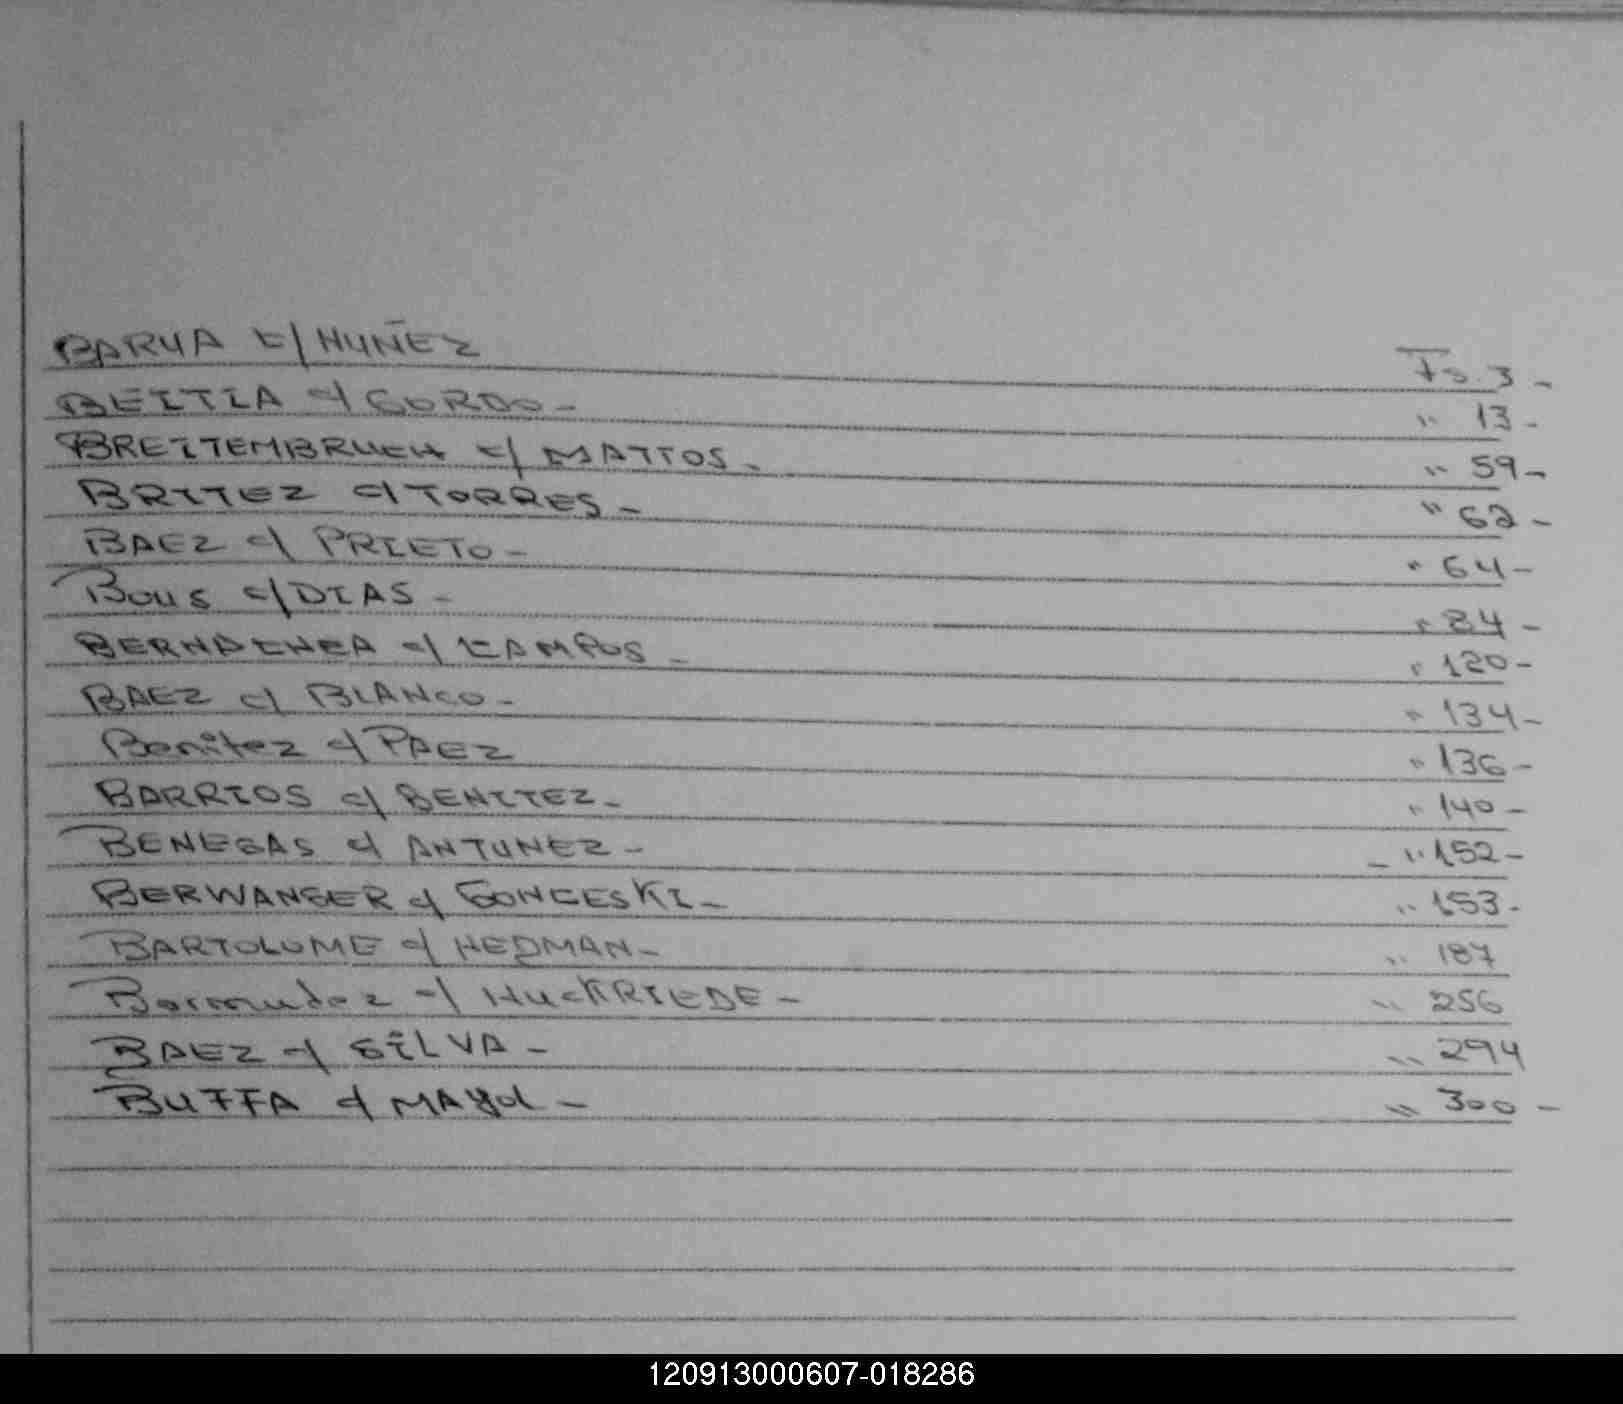 BARUA c/ NUÑEZ Fs. 3 -
BEITIA c/ GORDO - " 13 -
BREITEMBRUCH c/ MATTOS - " 59 -
BRITEZ c/ TORRES - " 62 -
BAEZ c/ PRIETO - " 64 -
Bous c/ DIAS - " 84 -
BERNACHEA c/ CAMPOS - " 120 -
BAEZ c/ BLANCO - " 134 -
Benitez c/ PAEZ " 136 -
BARRIOS c/ BENITEZ - " 140 -
BENEGAS c/ ANTUNEZ - " 152 -
BERWANGER c/ GONCESKI - " 153 -
BARTOLOME c/ HEDMAN - " 187
Bermudez c/ HUCKRIEDE - " 256
BAEZ c/ SILVA - " 294
BUFFA c/ MAYOL - " 300 -
120913000607-018286